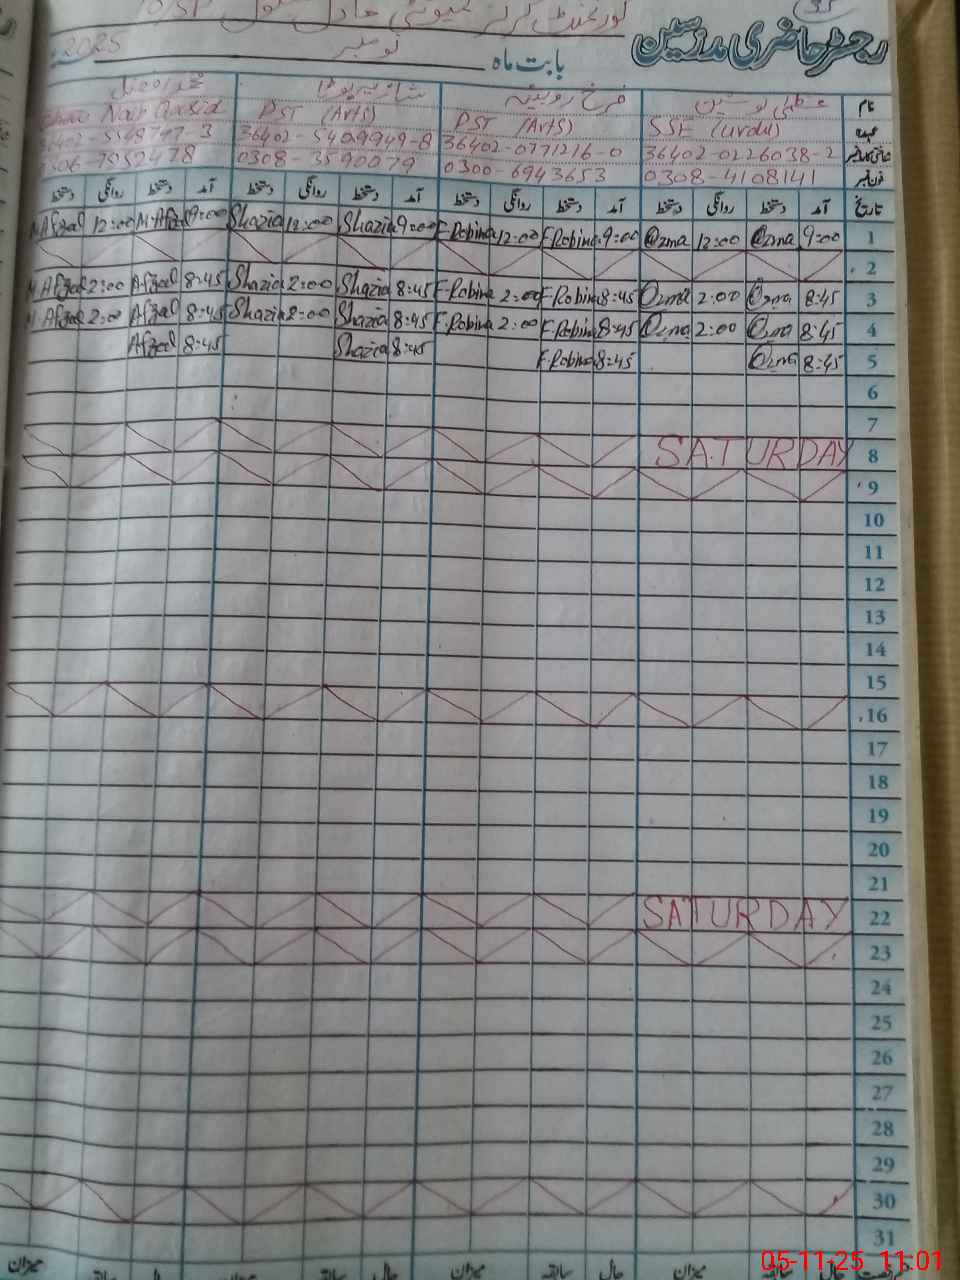 35
رجسٹر حاضری مدرسین
گورنمنٹ گرلز کمیونٹی ماڈل سکول 10/SP
بابت ماہ نومبر 2025
نام عظمیٰ نوشین فرخ روبینہ شازیہ بوٹا محمد افضل
عہدہ SSE (Urdu) PST (Arts) PST (Arts) Naib Qasid
شناختی کارڈ نمبر 36402-0226038-2 36402-0771216-0 36402-5409949-8
فون نمبر 0308-4108141 0300-6943653 0308-3590079
تاریخ آمد دستخط روانگی دستخط آمد دستخط روانگی دستخط آمد دستخط روانگی دستخط آمد دستخط روانگی دستخط
1 9:00 Ozma 12:00 Ozma 9:00 F.Robina 12:00 F.Robina 9:00 Shazia 12:00 Shazia 9:00 M.Afzal 12:00 M.Afzal
2
3 8:45 Ozma 2:00 Ozma 8:45 F.Robina 2:00 F.Robina 8:45 Shazia 2:00 Shazia 8:45 Afzal 2:00 M.Afzal
4 8:45 Ozma 2:00 Ozma 8:45 F.Robina 2:00 F.Robina 8:45 Shazia 2:00 Shazia 8:45 Afzal 2:00 M.Afzal
5 8:45 Ozma 8:45 F.Robina 8:45 Shazia 8:45 Afzal
6
7
8 SATURDAY
9
10
11
12
13
14
15
16
17
18
19
20
21
22 SATURDAY
23
24
25
26
27
28
29
30
31
حال سابقہ میزان حال سابقہ میزان حال سابقہ میزان
05-11-25 11:01